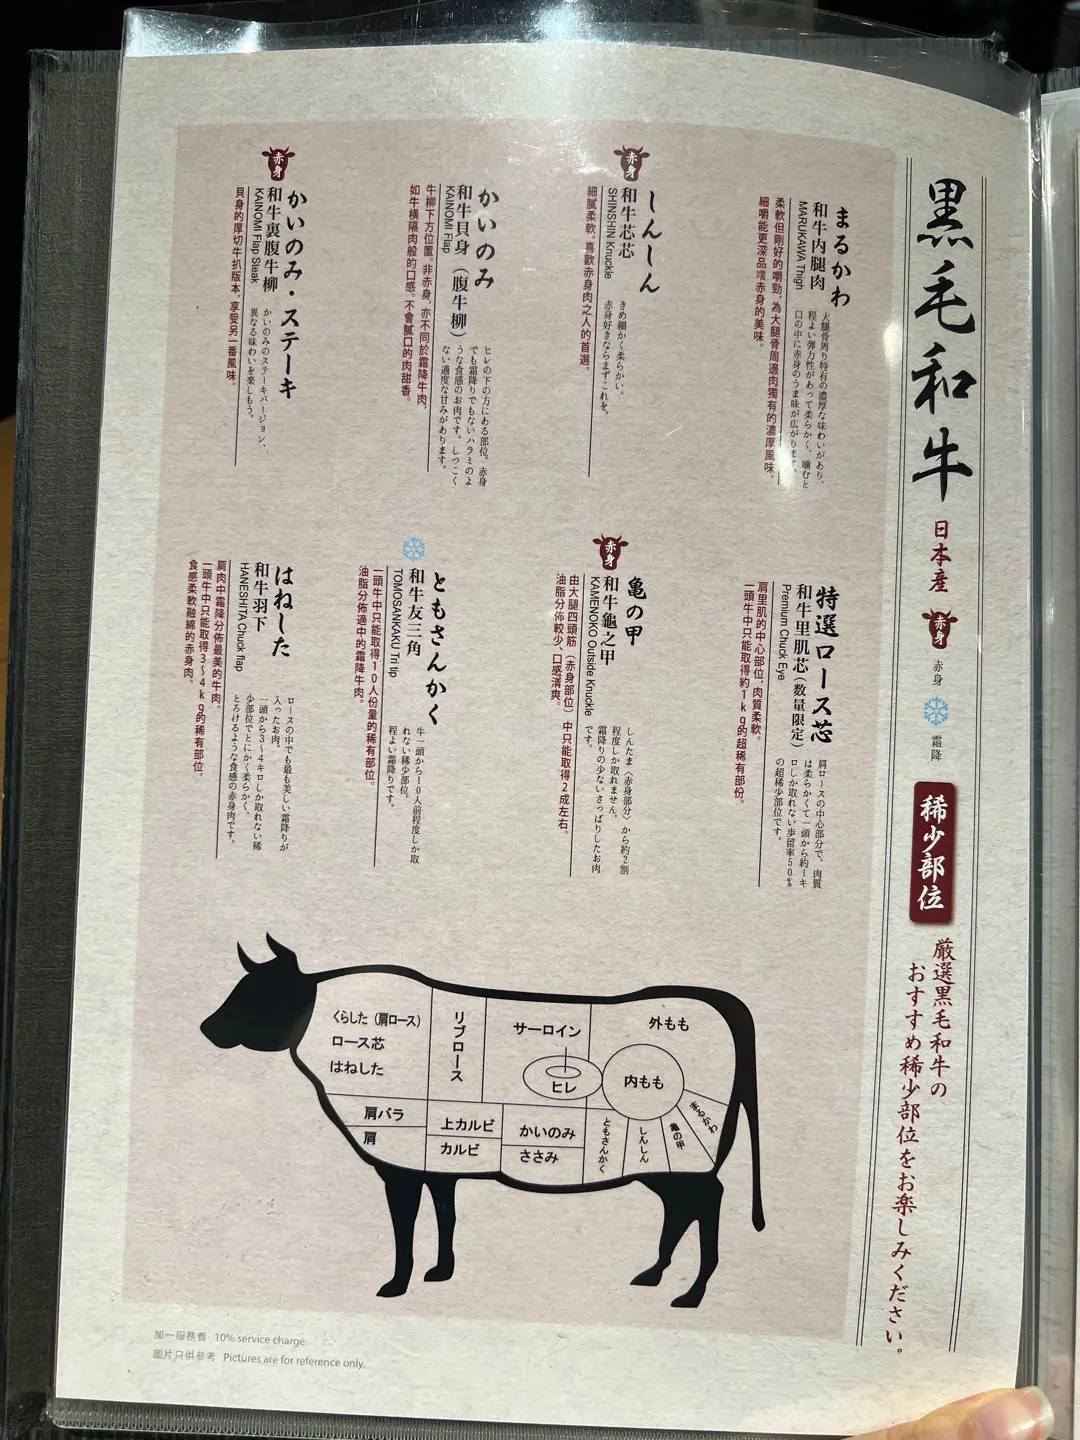 黒毛和牛
日本産
赤身
赤身
霜降
稀少部位
厳選黒毛和牛の
おすすめ稀少部位をお楽しみください。
まるかわ
和牛内腿肉
MARUKAWA Thigh
大腿骨周り特有の濃厚な味わいがあり、
程よい弾力性があって柔らかく、噛むと
口の中に赤身のうま味が広がります。
柔軟但剛好的嚼勁，為大腿骨周邊肉獨有的濃厚風味。
細嚼能更深品嚐赤身的美味。
赤身
しんしん
和牛芯芯
SHINSHIN Knuckle
きめ細かく柔らかい。
赤身好きならまずこれを。
細膩柔軟。喜歡赤身肉之人的首選。
かいのみ
和牛貝身（腹牛柳）
KAINOMI Flap
ヒレの下の方にある部位。赤身
でも霜降りでもないハラミのよ
うな食感のお肉です。しつこく
ない適度な甘みがあります。
牛柳下方位置。非赤身，亦不同於霜降牛肉，
如牛橫隔肉般的口感。不會膩口的肉甜香。
赤身
かいのみ・ステーキ
和牛裏腹牛柳
KAINOMI Flap Steak
かいのみのステーキバージョン、
異なる味わいを楽しもう。
貝身的厚切牛扒版本，享受另一番風味。
特選ロース芯
和牛里肌芯（数量限定）
Premium Chuck Eye
肩ロースの中心部分で、肉質
は柔らかくて一頭から約一キ
ロしか取れない歩留率50%
の超稀少部位です。
肩里肌的中心部位，肉質柔軟。
一頭牛中只能取得約1kg的超稀有部份。
赤身
亀の甲
和牛龜之甲
KAMENOKO Outside Knuckle
しんたま（赤身部分）から約2割
程度しか取れません。
霜降りの少ないさっぱりしたお肉
です。
由大腿四頭筋（赤身部位）中只能取得2成左右。
油脂分佈較少，口感清爽。
ともさんかく
和牛友三角
TOMOSANKAKU Tri tip
牛一頭から10人前程度しか取
れない稀少部位。
程よい霜降りです。
一頭牛中只能取得10人份量的稀有部位。
油脂分佈適中的霜降牛肉。
はねした
和牛羽下
HANESHITA Chuck flap
ロースの中でも最も美しい霜降りが
入ったお肉。
一頭から3~4キロしか取れない稀
少部位でとにかく柔らかく、
とろけるような食感の赤身肉です。
肩肉中霜降分佈最美的牛肉。
一頭牛中只能取得3~4kg的稀有部位，
食感柔軟融綿的赤身肉。
くらした（肩ロース）
ロース芯
はねした
リブロース
サーロイン
ヒレ
外もも
内もも
肩バラ
肩
上カルビ
カルビ
かいのみ
ささみ
ともさんかく
しんしん
亀の甲
まるかわ
加一服務費 10% service charge.
圖片只供參考 Pictures are for reference only.